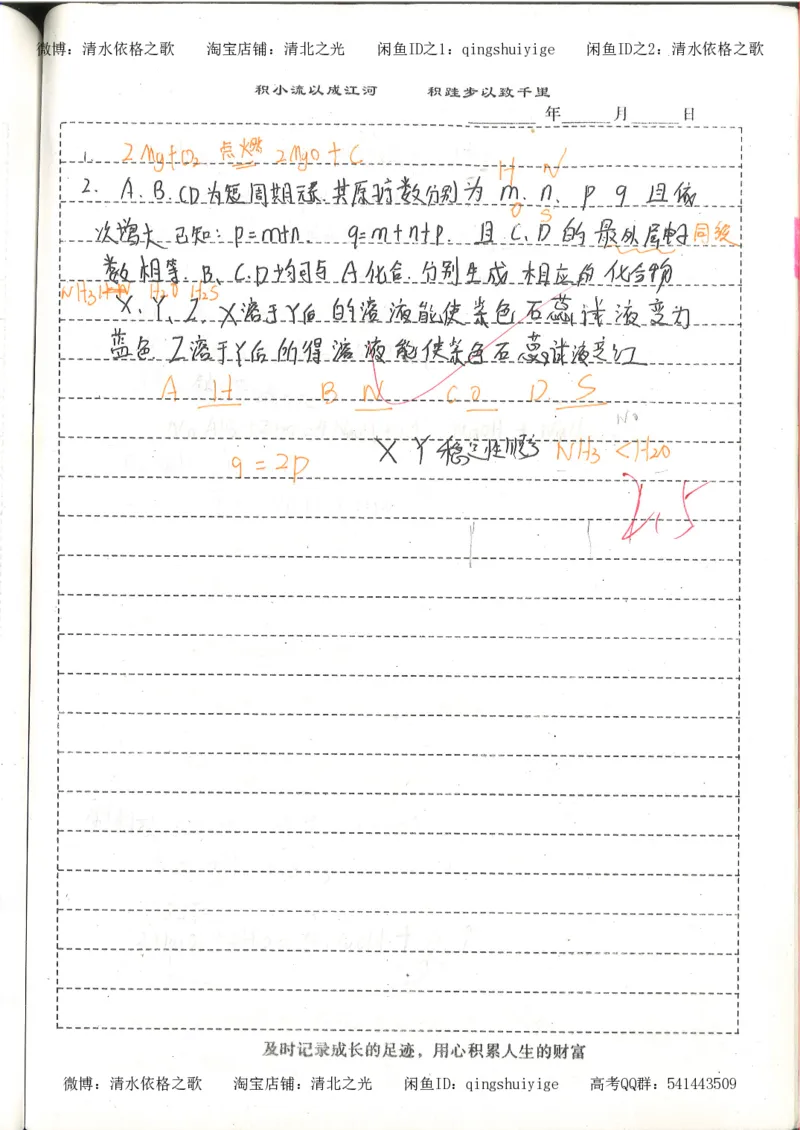 微博：清水依格之歌 淘宝店铺：清北之光 闲鱼ID之1：qingshuiyige 闲鱼ID之2：清水依格之歌
积小流以成江河 积跬步以致千里
年 月 日
1. 2Mg+CO2 点燃 2MgO+C
H N
2. A.B.CD为短周期元素.其原子序数分别为 m. n. p q 且依
O S
次增大 已知: p=m+n. q=m+n+p. 且C.D的最外层电子 同级
数相等. B、C.D均可与A化合.分别生成相应的化合物
NH3 H2O H2S
X、Y、Z X溶于Y后的溶液能使紫色石蕊试液变为
蓝色 Z溶于Y后的得溶液能使紫色石蕊试液变红
A H B N C O D S
Na
X Y 稳定性顺序 NH3 <H2O
q=2p
2.5
及时记录成长的足迹，用心积累人生的财富
微博：清水依格之歌 淘宝店铺：清北之光 闲鱼ID：qingshuiyige 高考QQ群：541443509